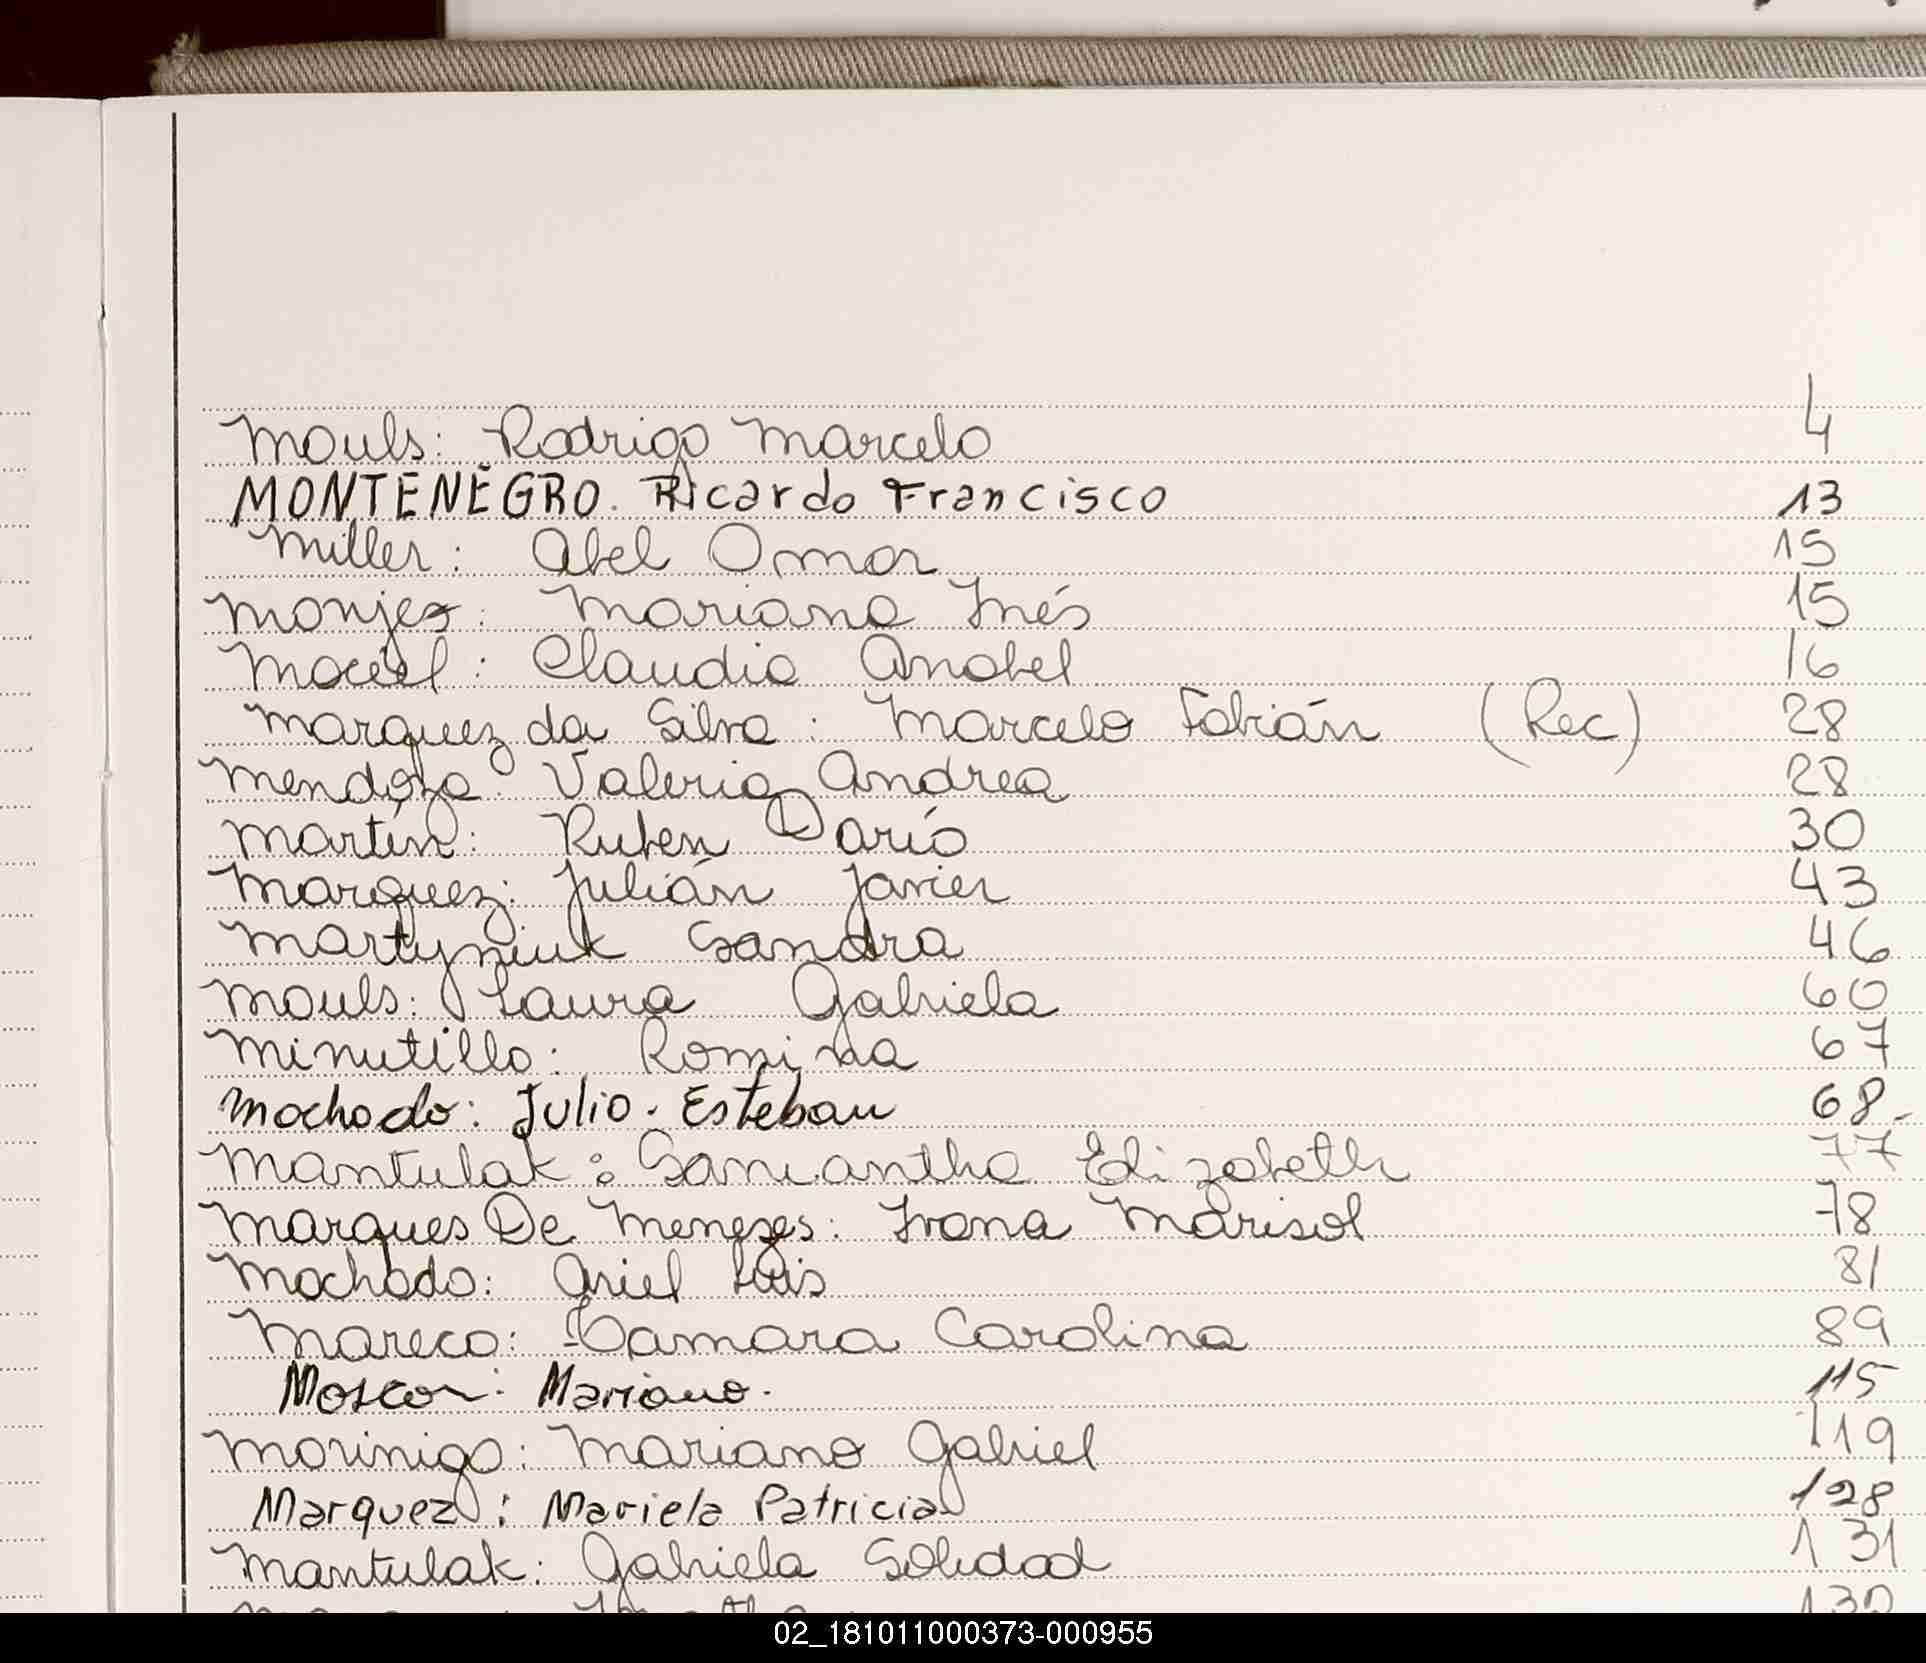 Mouls: Rodrigo Marcelo 4
MONTENEGRO. Ricardo Francisco 13
Miller: Abel Omar 15
Monjes: Mariana Inés 15
Maciel: Claudia Anabel 16
Marquez da Silva: Marcelo Fabián (Rec) 28
Mendoza: Valeria Andrea 28
Martín: Ruben Darío 30
Marquez: Julián Javier 43
Martyniuk Sandra 46
Mouls: Laura Gabriela 60
Minutillo: Romina 67
Machado: Julio. Esteban 68.
Mantulak: Samantha Elizabeth 77
Marques De Menezes: Ivana Marisol 78
Machado: Ariel Luis 81
Mareco: Tamara Carolina 89
Mariano. 115
Morinigo: Mariano Gabriel 119
Marquez: Mariela Patricia 128
Mantulak: Gabriela Soledad 131
02_181011000373-000955